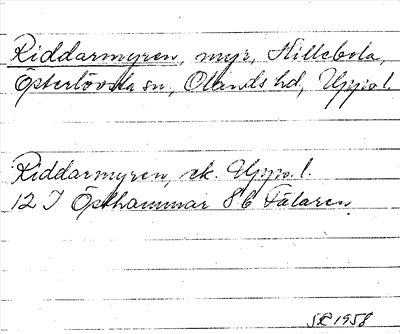 Riddarmyren, myr, Hillebola,
Österlövsta sn, Olands hd, Upps. l.
Riddarmyren, ek. Upps. l.
12 I Östhammar 8b Fälaren
1958